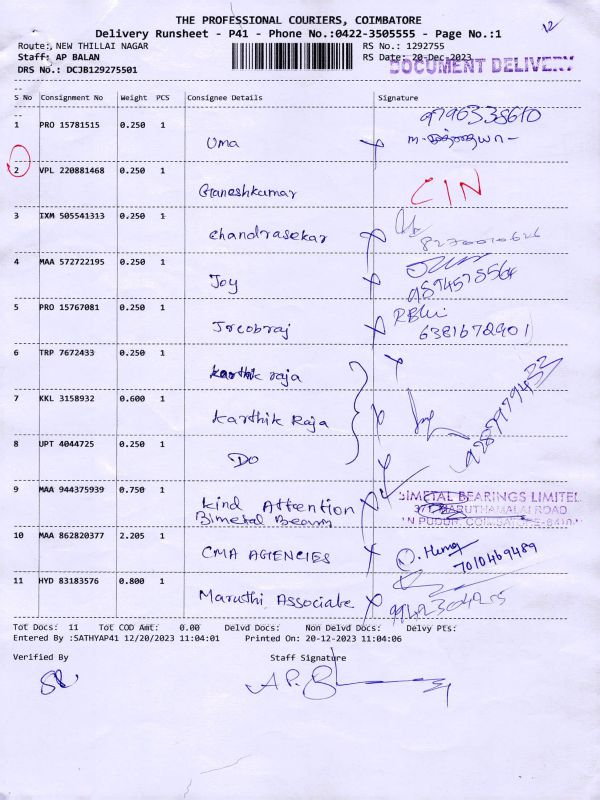 THE PROFESSIONAL COURIERS, COIMBATORE
12
Delivery Runsheet - P41 - Phone No.:0422-3505555 - Page No.:1
Route: NEW THILLAI NAGAR
RS No.: 1292755
Staff: AP BALAN
RS Date: 20-Dec-2023
DOCUMENT DELIVERY
DRS No.: DCJB129275501
S No Consignment No Weight PCS Consignee Details Signature
1 PRO 15781515 0.250 1 Uma
2 VPL 220881468 0.250 1 Ganeshkumar CIN
3 IXM 505541313 0.250 1 Chandrasekar
4 MAA 572722195 0.250 1 Joy
5 PRO 15767081 0.250 1 6381672901
6 TRP 7672433 0.250 1 karthik raja
7 KKL 3158932 0.600 1 Karthik Raja
8 UPT 4044725 0.250 1 Do
9 MAA 944375939 0.750 1 Kind Attention
Bimetal
BIMETAL BEARINGS LIMITED
371, MARUTHAMALAI ROAD
10 MAA 862820377 2.205 1 CMA AGENCIES 7010469489
11 HYD 83183576 0.800 1 Maruthi Associate
Tot Docs: 11 Tot COD Amt: 0.00 Delvd Docs: Non Delvd Docs: Delvy Pts:
Entered By :SATHYAP41 12/20/2023 11:04:01 Printed On: 20-12-2023 11:04:06
Verified By Staff Signature